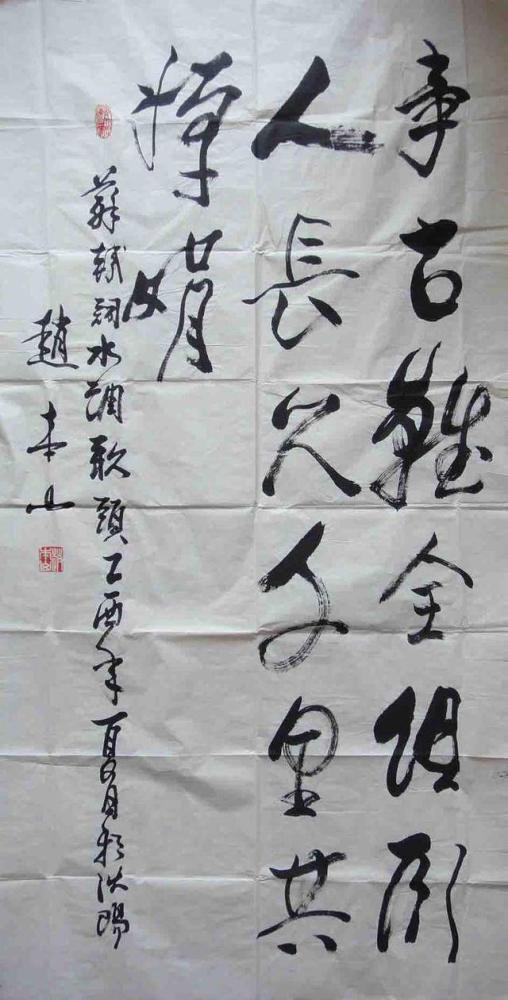 事古難全但願
人長久千里共
嬋娟
蘇軾詞水調歌頭乙酉年夏月於沈陽
趙本山